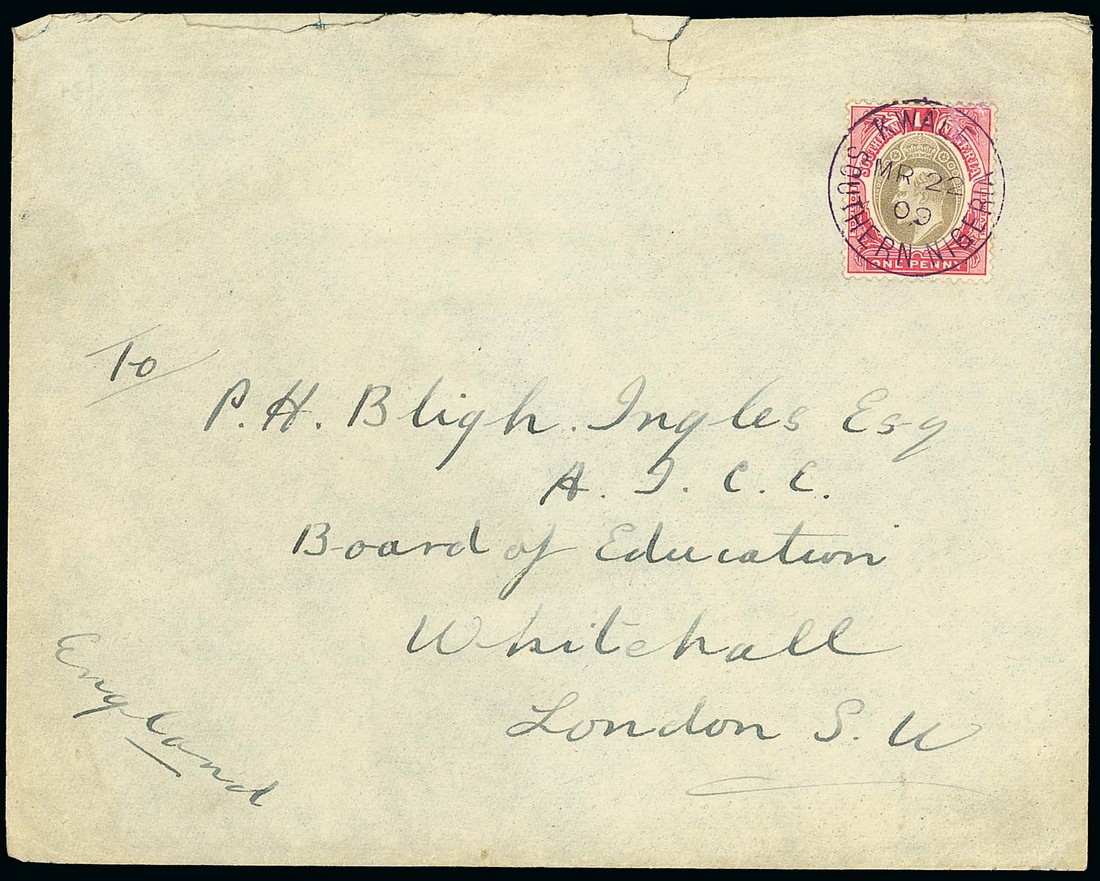 SOUTHERN NIGERIA
ONE PENNY
KWALE
MR 22
09
SOUTHERN NIGERIA
To
P. H. Bligh Ingles Esq
A. I. C. C.
Board of Education
Whitehall
London S. W
England